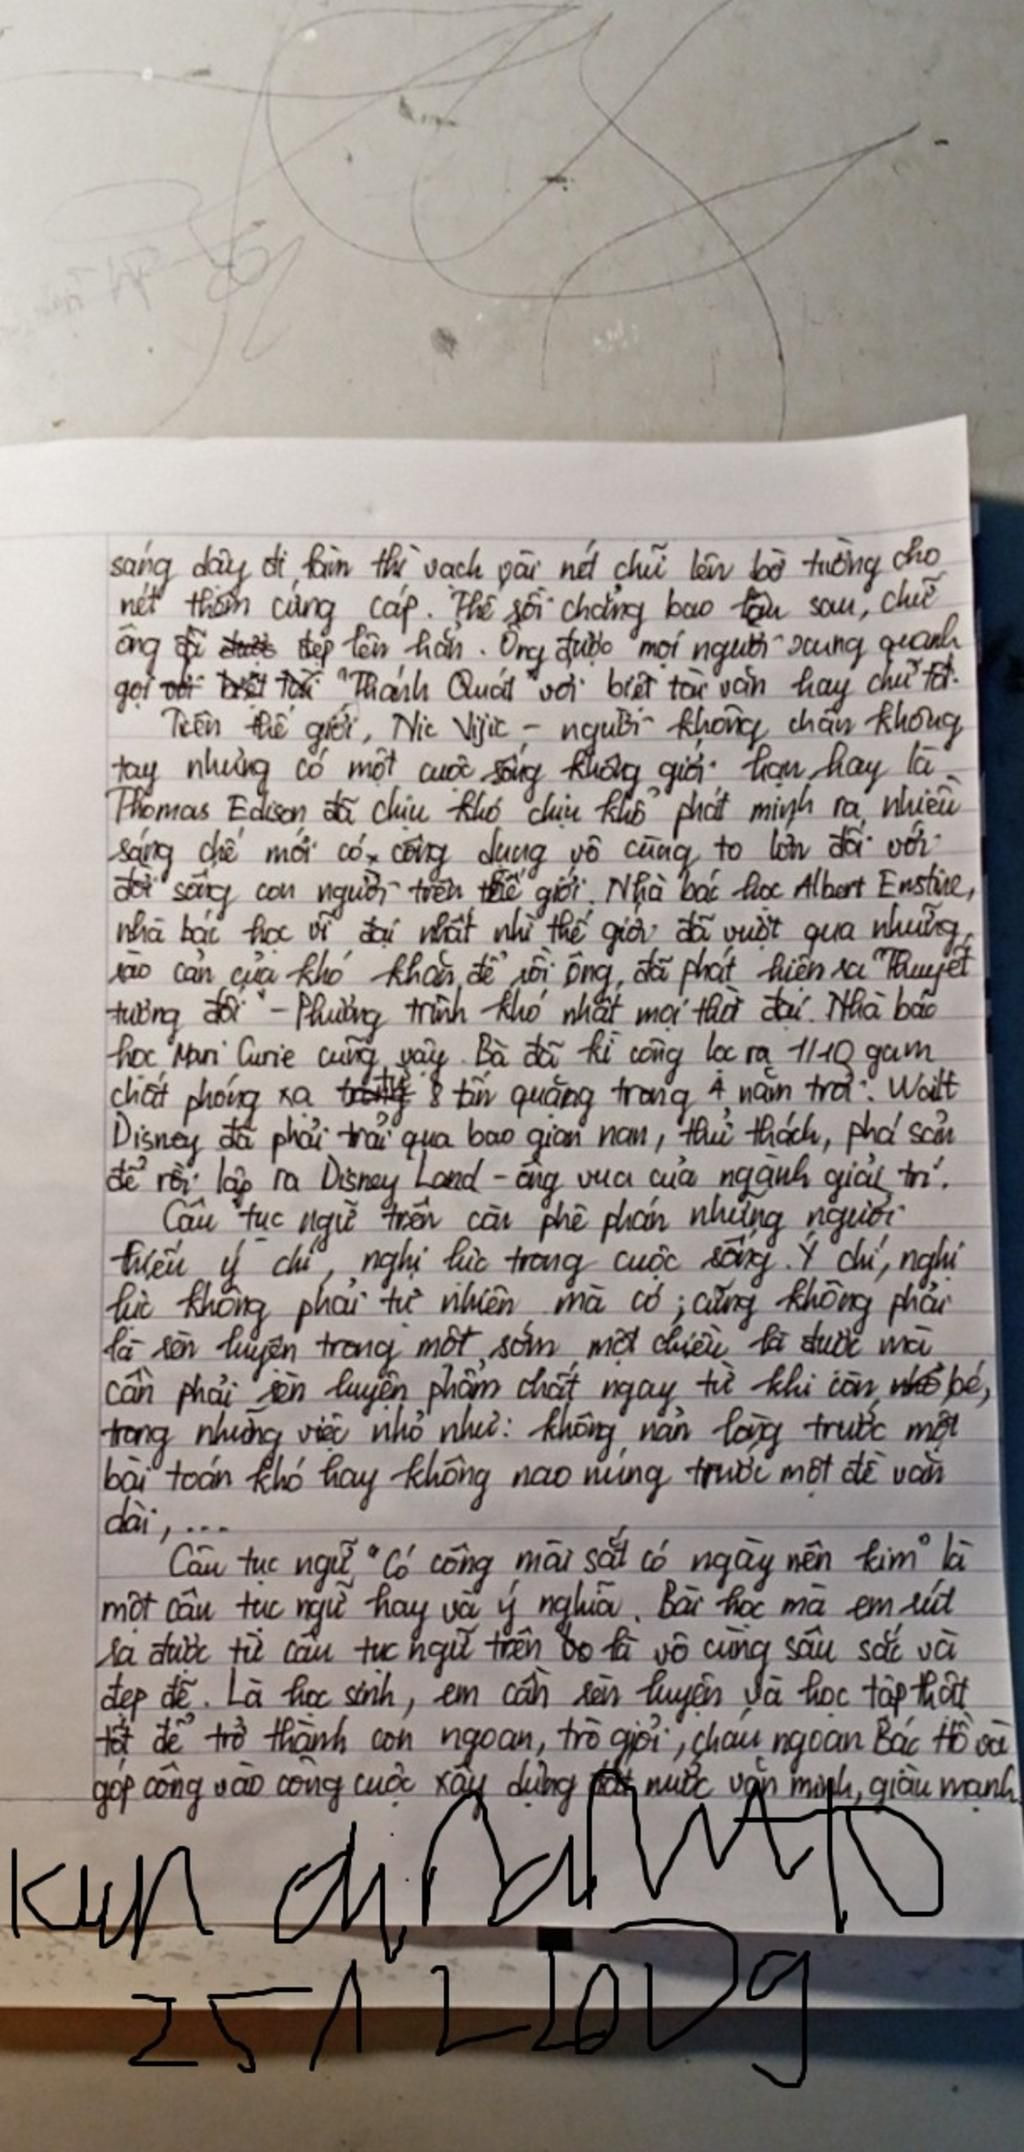 sáng dậy đi làm thì vạch vài nét chữ lên bờ tường cho
nét thêm cứng cáp. Thế rồi chẳng bao lâu sau, chữ
ông đã đẹp lên hẳn. Ông được mọi người xung quanh
gọi "Thánh Quát" với biệt tài văn hay chữ tốt.
Trên thế giới, Nic Vijic - người không chân không
tay nhưng có một cuộc sống không giới hạn hay là
Thomas Edison đã chịu khó chịu khổ phát minh ra nhiều
sáng chế mới có công dụng vô cùng to lớn đối với
đời sống con người trên thế giới. Nhà bác học Albert Enstine,
nhà bác học vĩ đại nhất nhì thế giới đã vượt qua những
rào cản của khó khăn để rồi ông đã phát hiện ra "Thuyết
tương đối" - Phương trình khó nhất mọi thời đại. Nhà bác
học Mari Curie cũng vậy. Bà đã kì công lọc ra 1/10 gam
chất phóng xạ từ 8 tấn quặng trong 4 năm trời. Wailt
Disney đã phải trải qua bao gian nan, thử thách, phá sản
để rồi lập ra Disney Land - ông vua của ngành giải trí.
Câu tục ngữ trên còn phê phán những người
thiếu ý chí, nghị lực trong cuộc sống. Ý chí, nghị
lực không phải tự nhiên mà có; cũng không phải
là rèn luyện trong một sớm một chiều là được mà
cần phải rèn luyện phẩm chất ngay từ khi còn bé,
trong những việc nhỏ như: không nản lòng trước một
bài toán khó hay không nao núng trước một đề văn
dài,...
Câu tục ngữ "Có công mài sắt có ngày nên kim" là
một câu tục ngữ hay và ý nghĩa. Bài học mà em rút
ra được từ câu tục ngữ trên là vô cùng sâu sắc và
đẹp đẽ. Là học sinh, em cần rèn luyện và học tập thật
tốt để trở thành con ngoan, trò giỏi, cháu ngoan Bác Hồ và
góp công vào công cuộc xây dựng đất nước văn minh, giàu mạnh.